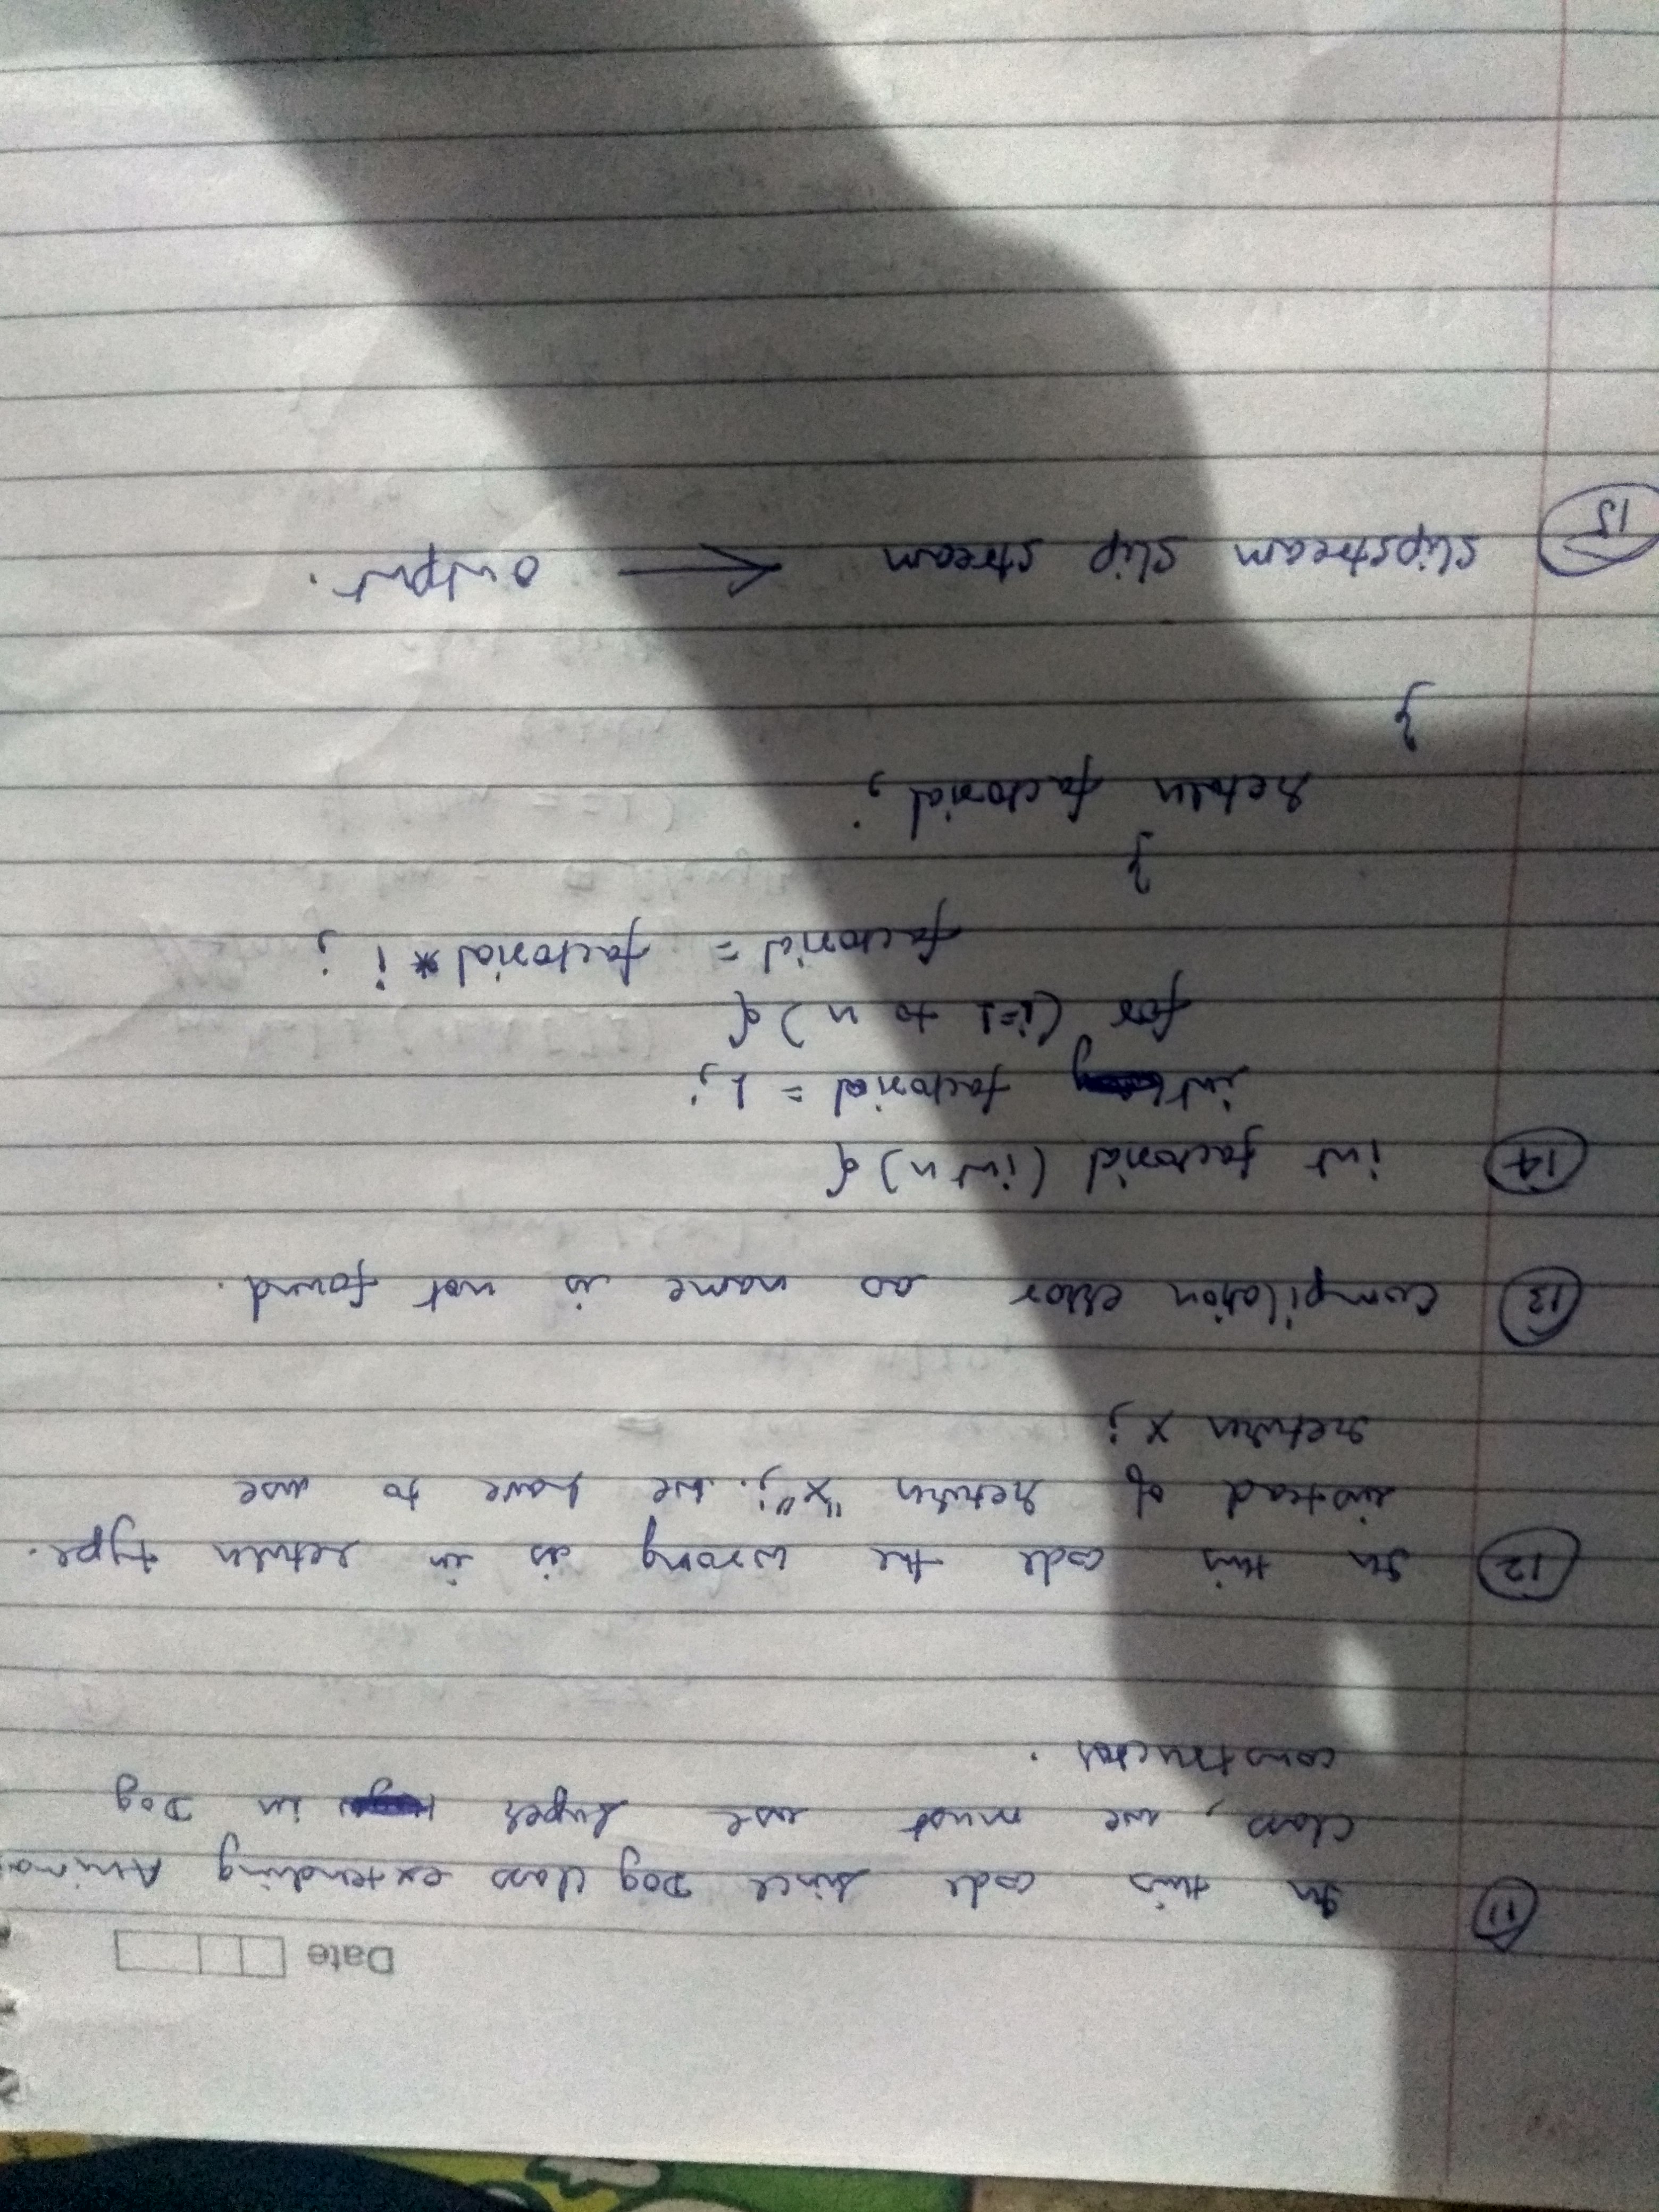 Date
11 In this code since Dog class extending Anima
class, we must use super in Dog
constructor.
12 In this code the wrong is in return type.
instead of return "x";. we have to use
return x;
13 Compilation error as name is not found.
14 int factorial (int n) {
int factorial = 1;
for (i=1 to n) {
factorial = factorial * i ;
}
return factorial;
}
15 slipstream slip stream ← output.